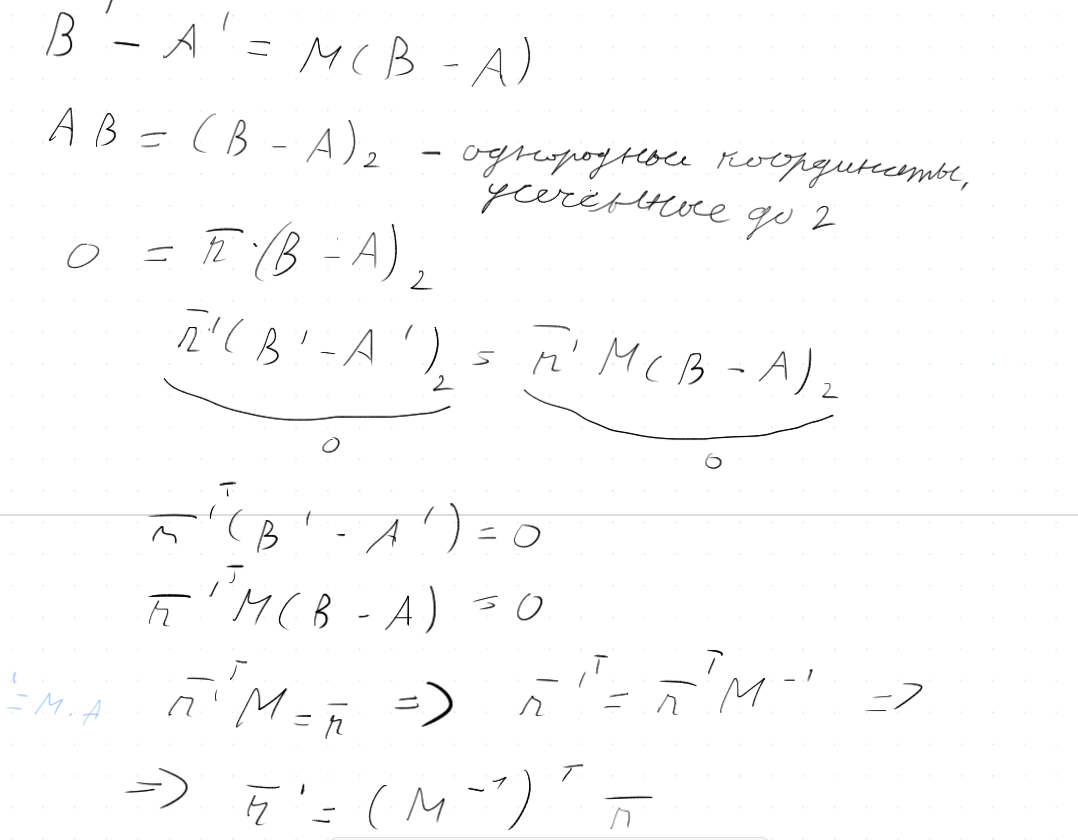 B' - A' = M(B - A)
AB = (B - A)₂ - однородные координаты,
усечённое до 2
0 = n̅·(B - A)₂
n̅'(B' - A')₂ = n̅' M(B - A)₂
0 0
n̅'ᵀ(B' - A') = 0
n̅'ᵀM(B - A) = 0
' = M·A n̅'ᵀM = n̅ => n̅'ᵀ = n̅ᵀM⁻¹ =>
=> n̅' = (M⁻¹)ᵀ n̅